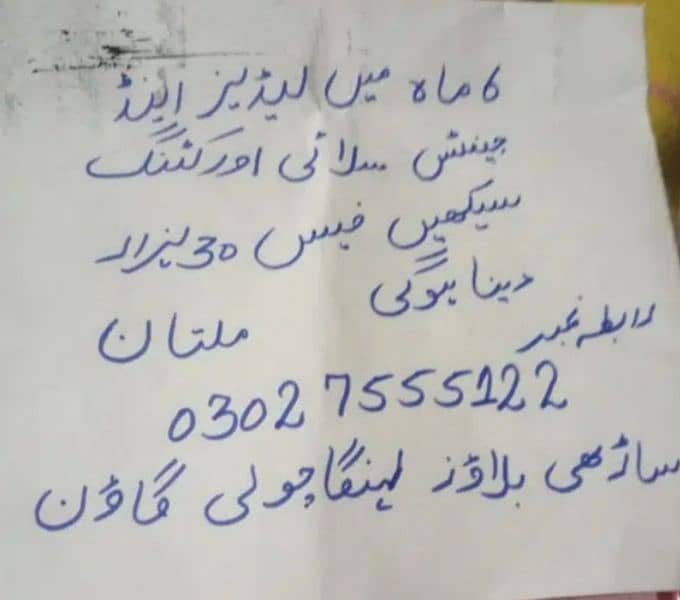 6 ماہ میں لیڈیز اینڈ
جینٹس سلائی اور کٹنگ
سیکھیں فیس 30 ہزار
دینا ہوگی
رابطہ نمبر
ملتان
0302 7555122
ساڑھی بلاؤز لہنگا چولی گاؤن